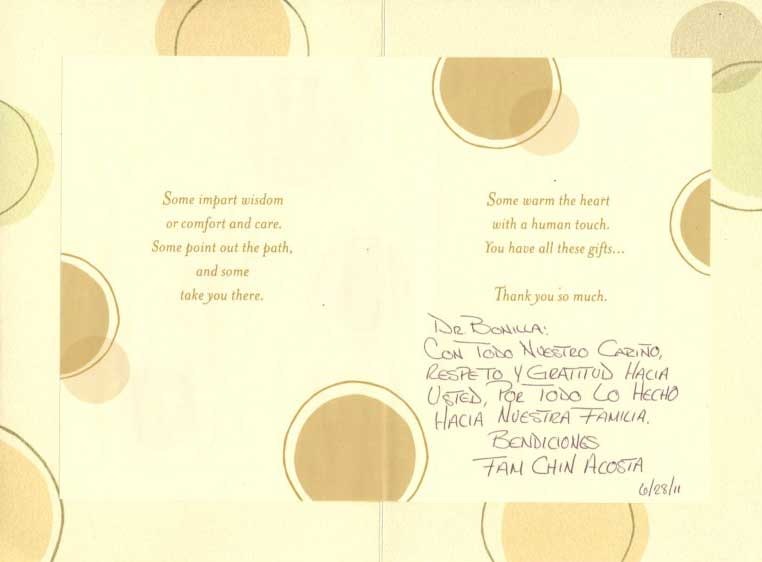 Some impart wisdom
or comfort and care.
Some point out the path,
and some
take you there.
Some warm the heart
with a human touch.
You have all these gifts...
Thank you so much.
DR BONILLA:
CON TODO NUESTRO CARIÑO,
RESPETO Y GRATITUD HACIA
USTED, POR TODO LO HECHO
HACIA NUESTRA FAMILIA.
BENDICIONES
FAM CHIN ACOSTA
6/28/11